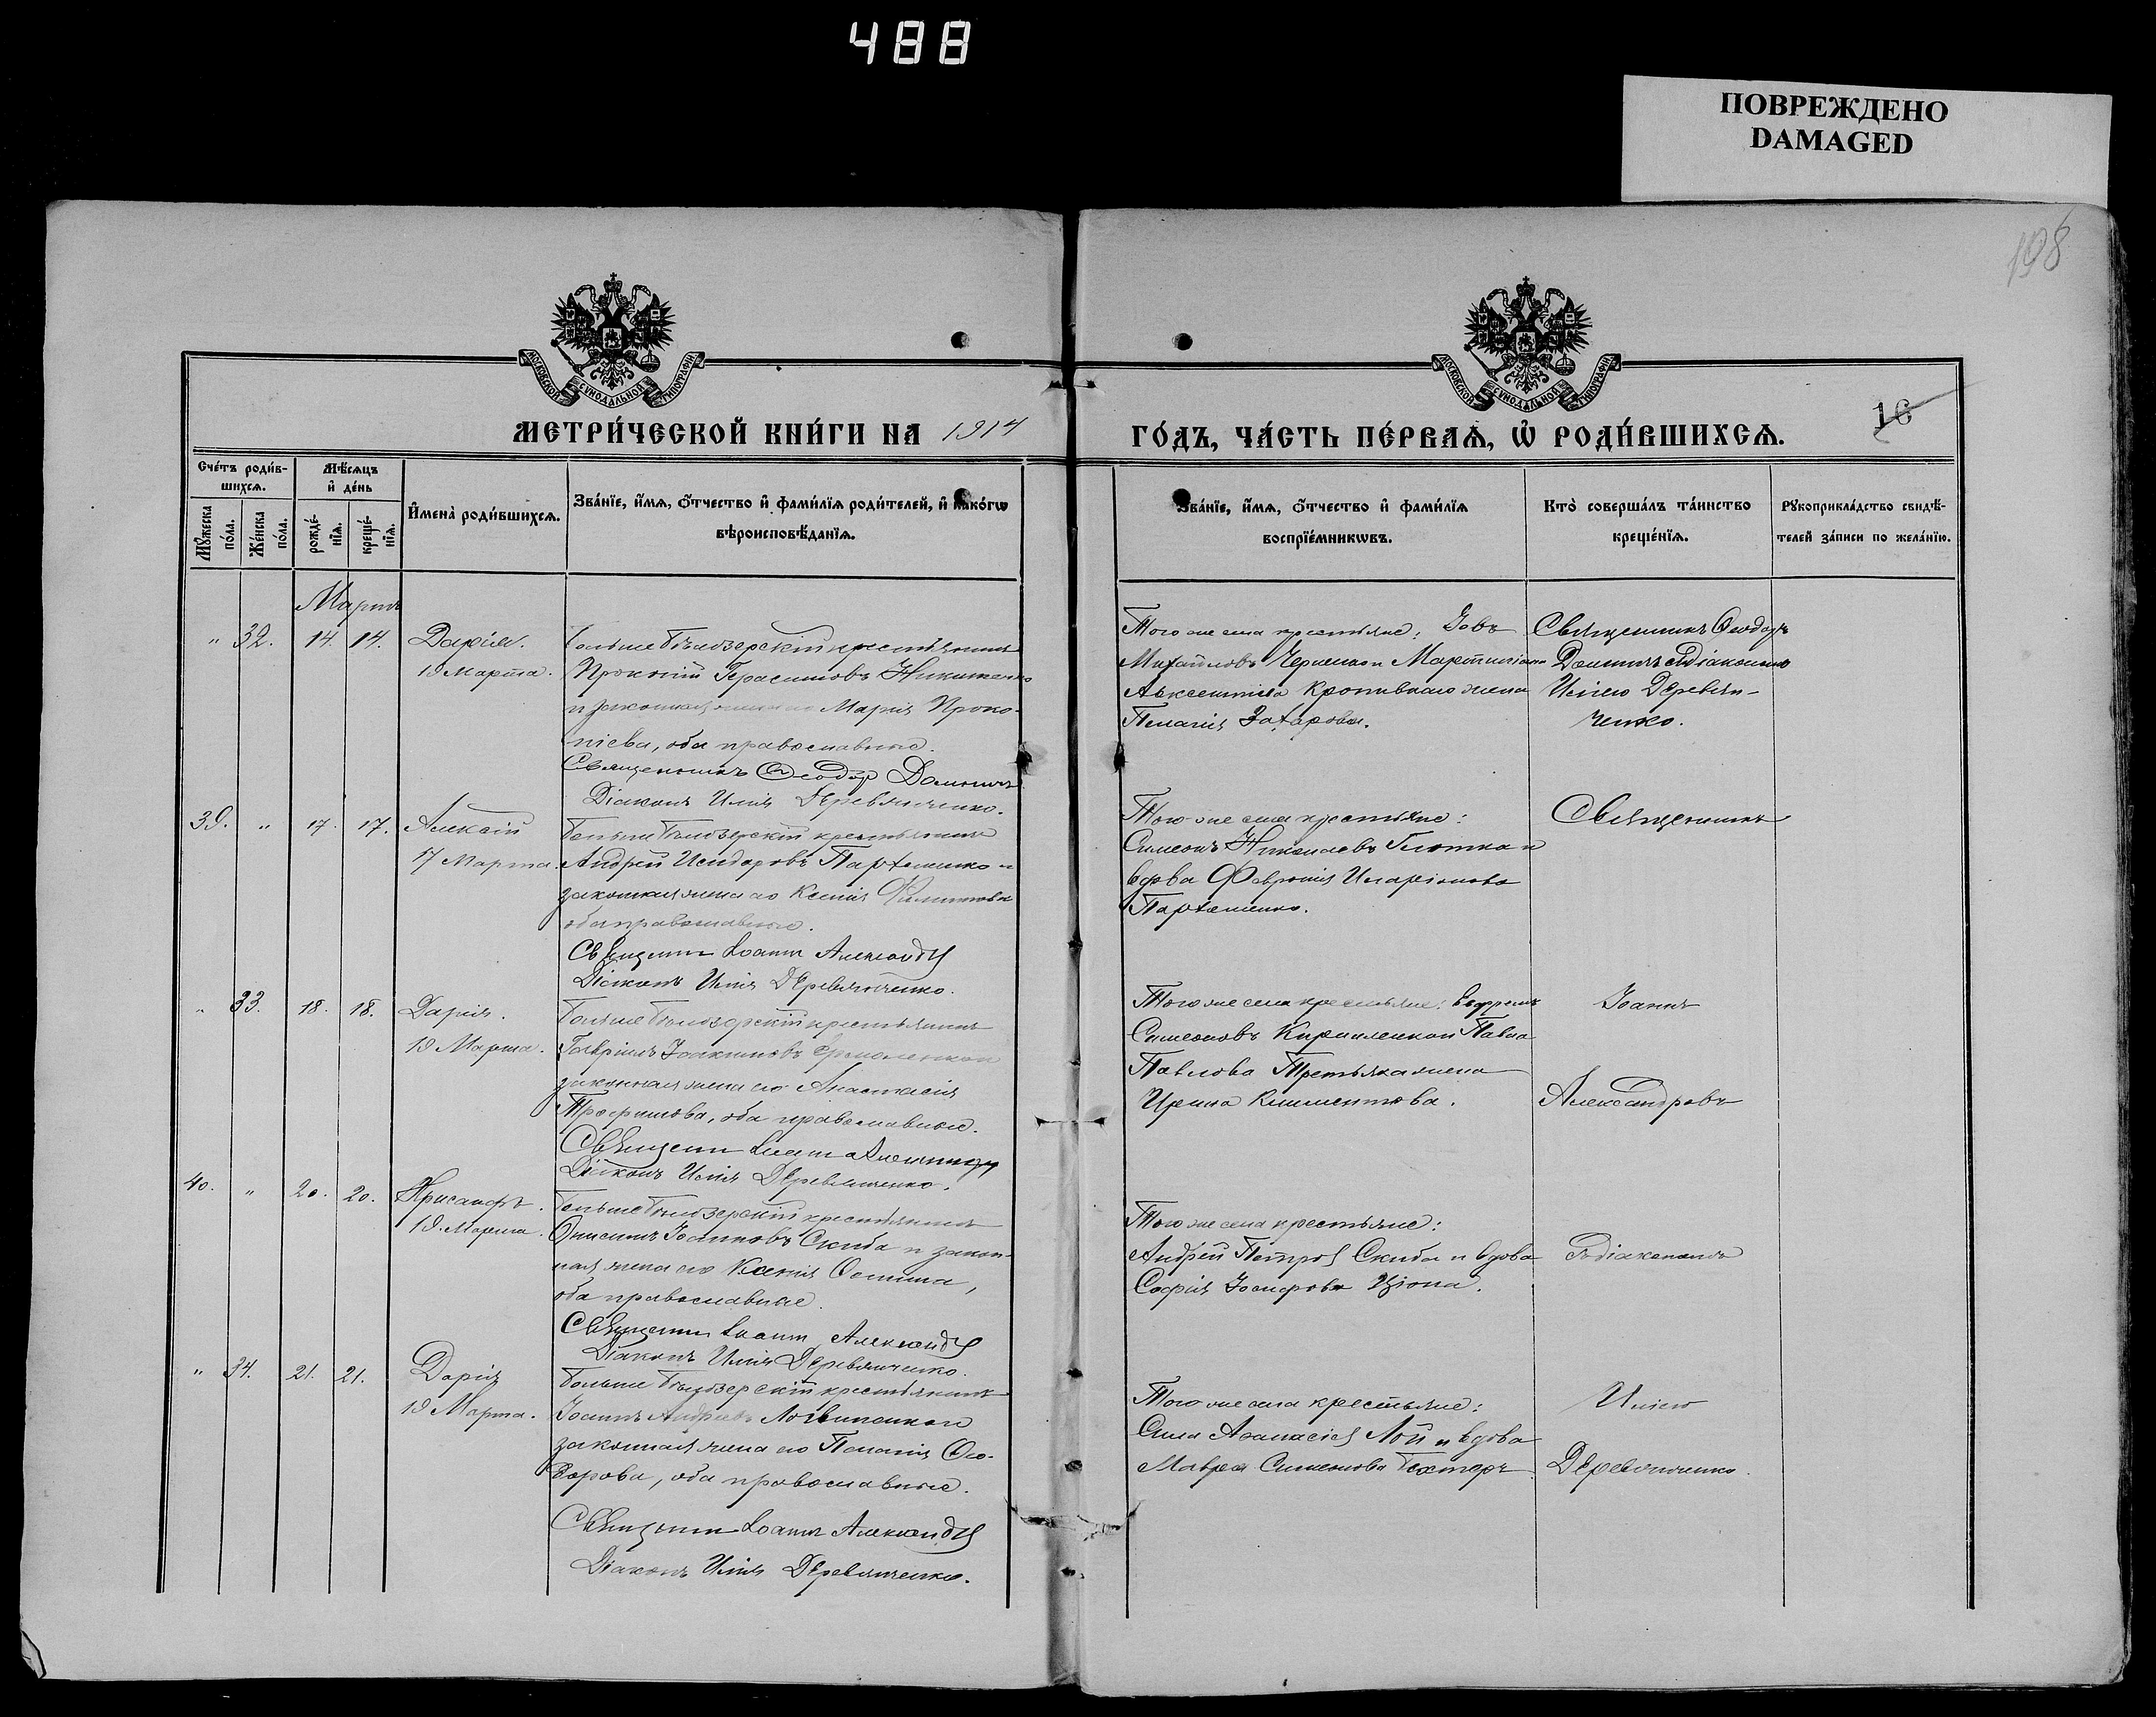 488
ПОВРЕЖДЕНО
DAMAGED
198
МОСКОВСКОЙ СѴНОДАЛЬНОЙ ТИПОГРАФІИ
МОСКОВСКОЙ СѴНОДАЛЬНОЙ ТИПОГРАФІИ
МЕТРИ́ЧЕСКОЙ КНИ́ГИ НА 1914
ГО́ДЪ, ЧА́СТЬ ПЕ́РВАѦ, Ѡ҆ РОДИ́ВШИХСѦ.
16
Сче́тъ роди́в-
шихсѧ.
Мѣ́сѧцъ
и҆ де́нь
Мꙋ́жеска
по́ла.
Же́нска
по́ла.
рожде́-
нїѧ.
креще́-
нїѧ.
И҆мена̀ роди́вшихсѧ.
Зва́нїе, и҆́мѧ, ѻ҆́тчество и҆ фами́лїѧ роди́телей, и҆ како́гѡ
вѣроисповѣ́данїѧ.
Зва́нїе, и҆́мѧ, ѻ҆́тчество и҆ фами́лїѧ
воспрїе́мникѡвъ.
Кто̀ соверша́лъ та́инство
креще́нїѧ.
Рꙋкоприкла́дство свидѣ́-
телей за́писи по жела́нїю.
Мартъ
" 32. 14. 14. Дарія.
19 Марта.
Больше Бѣлозерскій крестьянинъ
Прокопій Герасимовъ Никитенко
и законная жена его Марія Проко-
піева, оба православные.
Священникъ Ѳеодоръ Домничъ
Діаконъ Илія Деревянченко.
Того же села крестьяне: Іовъ
Михайловъ Черненко и
Авксентіева Кропивного жена
Пелагія Захарова.
Священникъ Ѳеодоръ
Домничъ съ діакономъ
Иліею Деревян-
ченко.
39. " 17. 17. Алексій
17 Марта.
Больше Бѣлозерскій крестьянинъ
Андрей Исидоровъ Пархоменко и
законная жена его Ксенія Филиппова
оба православные.
Священникъ Іоаннъ Александровъ
Діаконъ Илія Деревянченко.
Того же села крестьяне:
Симеонъ Николаевъ и
вдова Февронія Иларіонова
Пархоменко.
Священникъ
" 33. 18. 18. Дарія.
19 Марта.
Больше Бѣлозерскій крестьянинъ
Гавріилъ Іоакимовъ Ермоленко и
законная жена его Анастасія
Трофимова, оба православные.
Священникъ Іоаннъ Александровъ
Діаконъ Илія Деревянченко.
Того же села крестьяне: Ефремъ
Симеоновъ Кириленко и Павла
Павлова Третьяка жена
Ирина Климентова.
Іоаннъ
Александровъ
40. " 20. 20. Хрисанфъ.
19 Марта.
Больше Бѣлозерскій крестьянинъ
Онисимъ Іоанновъ Скиба и закон-
ная жена его Ксенія Осипова,
оба православные.
Священникъ Іоаннъ Александровъ
Діаконъ Илія Деревянченко.
Того же села крестьяне:
Андрей Петровъ Скиба и вдова
Софія Іосифова
съ діакономъ
" 34. 21. 21. Дарія
19 Марта.
Больше Бѣлозерскій крестьянинъ
Іоаннъ Андреевъ Логвиненко и
законная жена его Пелагія Ѳео-
дорова, оба православные.
Священникъ Іоаннъ Александровъ
Діаконъ Илія Деревянченко.
Того же села крестьяне:
Сила Аѳанасіевъ Лой и вдова
Мавра Симеонова Бехтеръ
Иліею
Деревянченко.